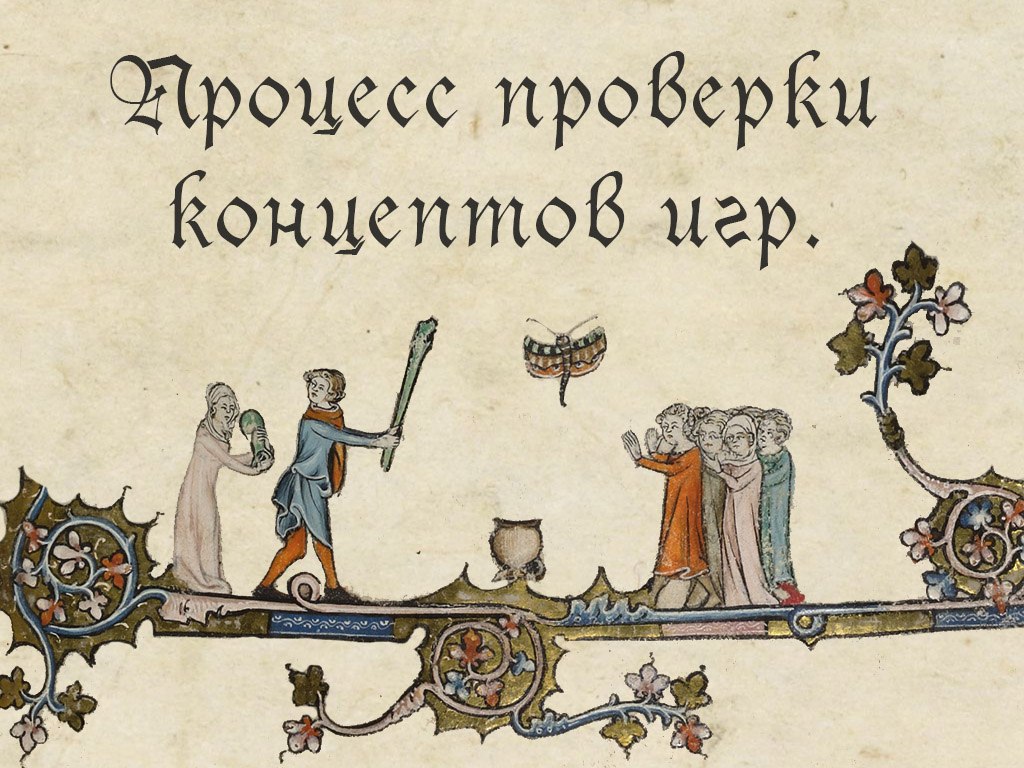 Процесс проверки
концептов игр.